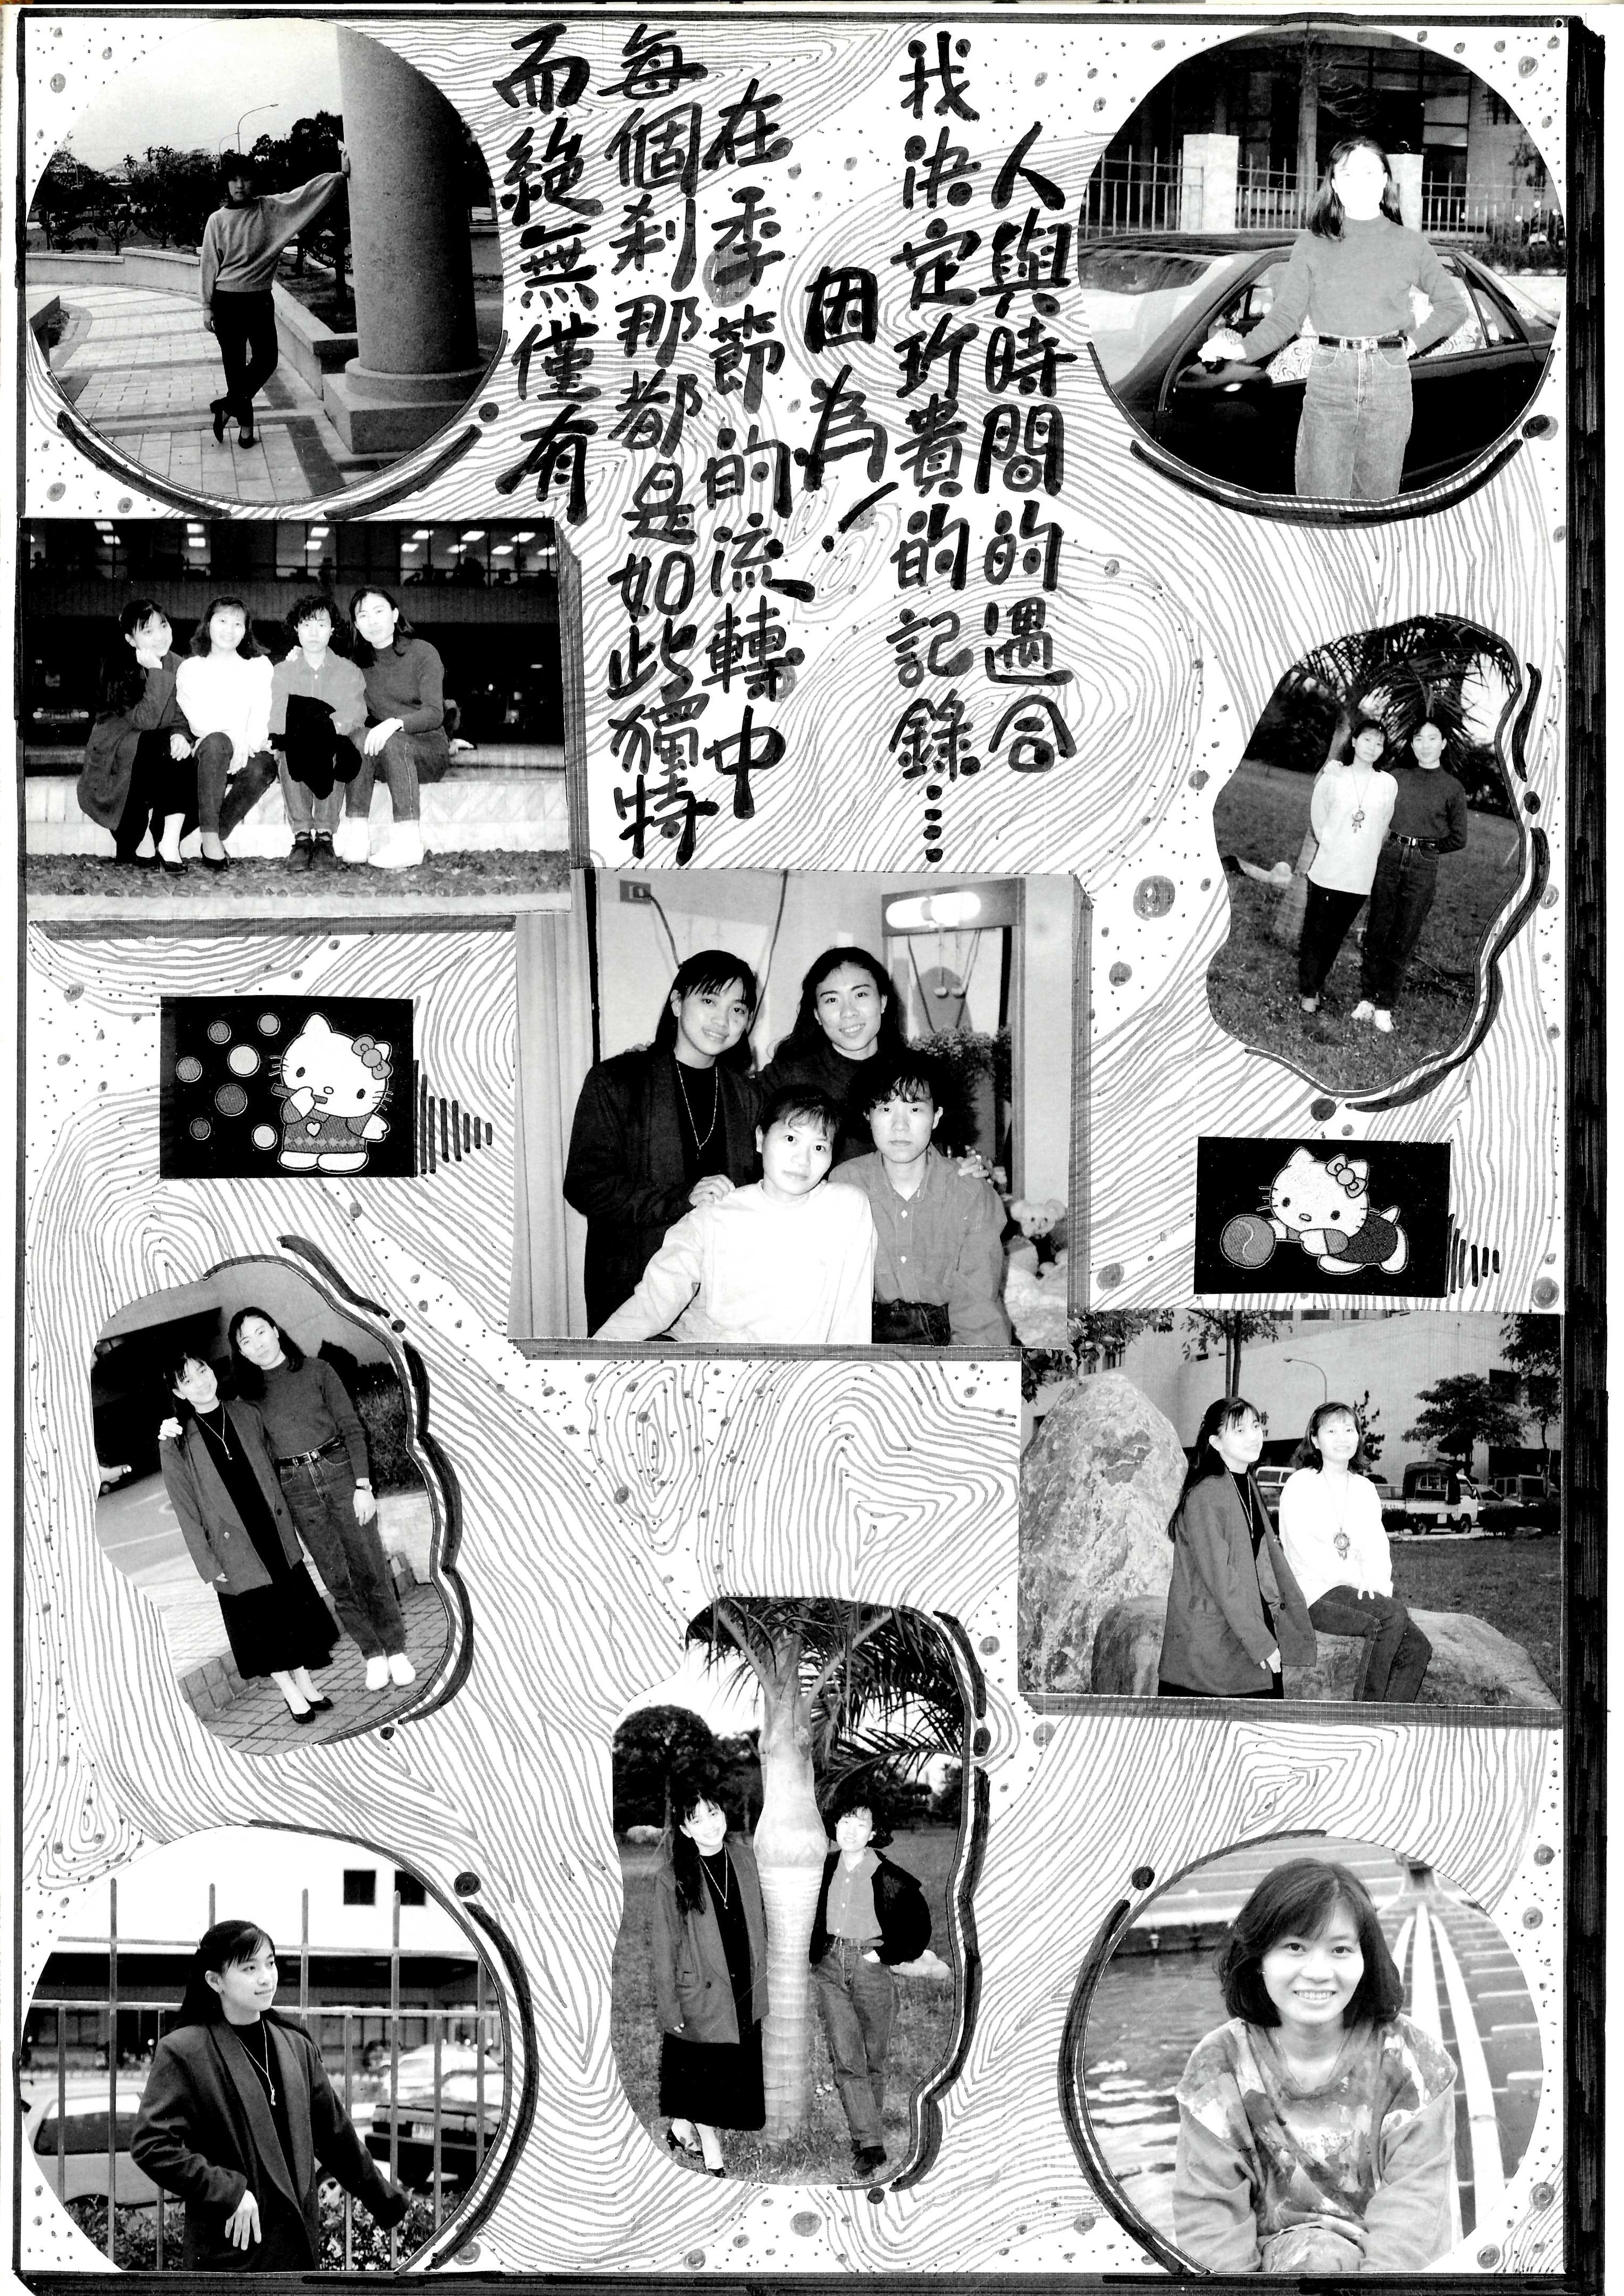 人與時間的遇合
我決定珍貴的記錄⋯⋯
因為！
在季節的流轉中
每個剎那都是如此獨特
而絕無僅有